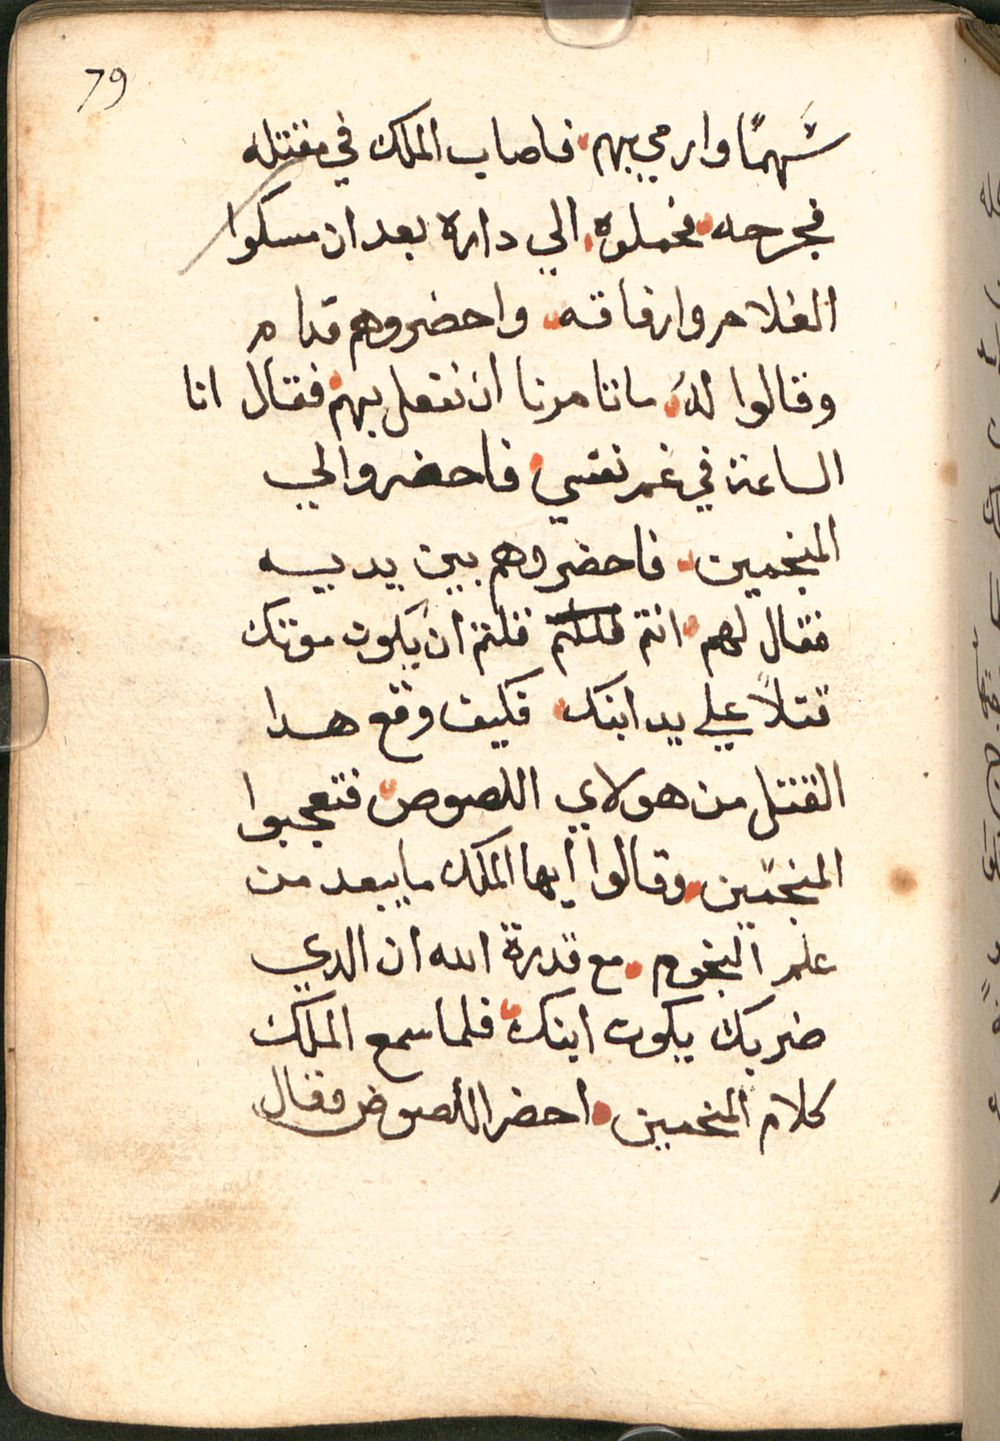 79
شهمًا وارمي بهم فاصاب الملك في مقتله
فجرحه فحملوه الي داره بعد ان مسكوا
الغلام وارفاقه واحضروهم قدام
وقالوا له ماتامرنا ان نفعل بهم فقال انا
الساعة في غم نفسي فاحضروا لي
المنجمين فاحضروهم بين يديه
فقال لهم انتم قلتم أن يكون موتك
قتلاً علي يد ابنك فكيف وقع هدا
القتل من هولاي اللصوص فتعجبوا
المنجمين وقالوا أيها الملك مايبعد من
علم النجوم مع قدرة الله ان الدي
ضربك يكون ابنك فلما سمع الملك
كلام المنجمين احضر اللصوص فقال